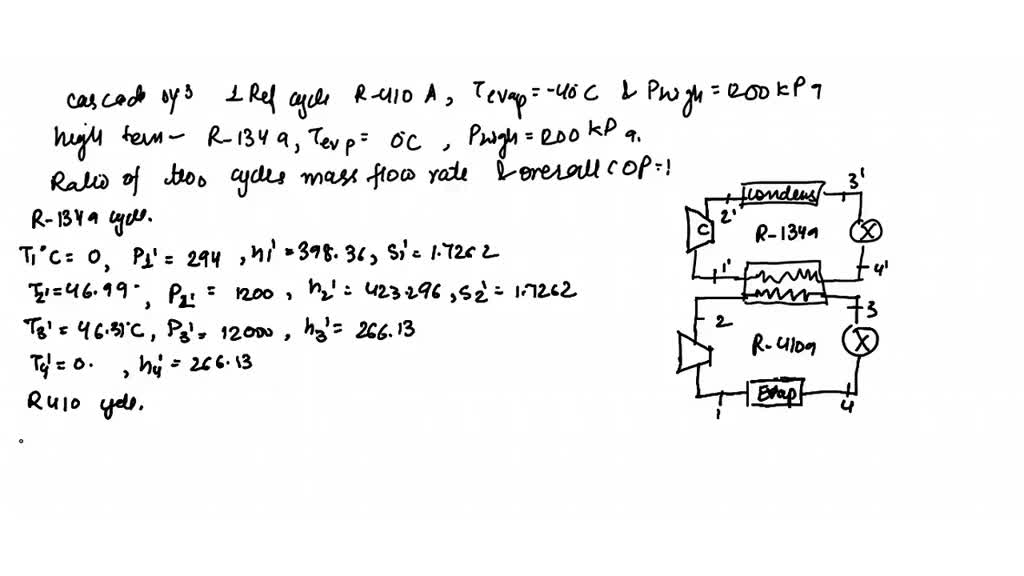 cascade sys 1 Ref cycle R-410 A, Tevap = -40°C & Phigh = 1200 kPa
high tem- R-134a, Tevp = 0°C, Phigh = 1200 kPa.
Ratio of two cycles mass flow rate & overall COP = ?
R-134a cycle.
T1'°C = 0, P1' = 294, h1' = 398.36, S1' = 1.7262
T2' = 46.99°, P2' = 1200, h2' = 423.296, S2' = 1.7262
T3' = 46.31°C, P3' = 12000, h3' = 266.13
T4' = 0. , h4' = 266.13
R410 cycle.
condens
3'
2'
C
R-134a
X
1'
4'
2
3
R-410a
X
Evap
1
4